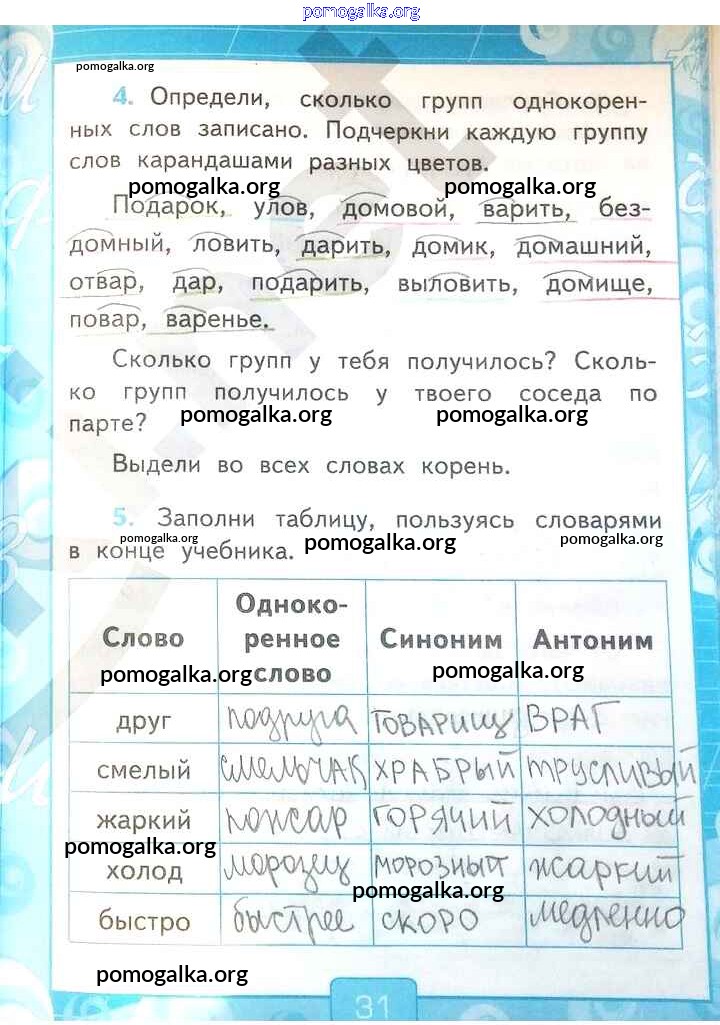 pomogalka.org
pomogalka.org
4. Определи, сколько групп однокорен-
ных слов записано. Подчеркни каждую группу
слов карандашами разных цветов.
pomogalka.org pomogalka.org
Подарок, улов, домовой, варить, без-
домный, ловить, дарить, домик, домашний,
отвар, дар, подарить, выловить, домище,
повар, варенье.
Сколько групп у тебя получилось? Сколь-
ко групп получилось у твоего соседа по
парте?
pomogalka.org pomogalka.org
Выдели во всех словах корень.
5. Заполни таблицу, пользуясь словарями
pomogalka.org pomogalka.org pomogalka.org
в конце учебника.
Слово Одноко-ренное слово Синоним Антоним
pomogalka.org pomogalka.org
друг подруга ТОВАРИЩ ВРАГ
смелый смельчАК ХРАБРЫЙ трусливый
жаркий пожар ГОРЯЧИЙ холодный
pomogalka.org
холод морозец МОРОЗНЫЙ жаркий
pomogalka.org
быстро быстрее СКОРО медленно
pomogalka.org
31